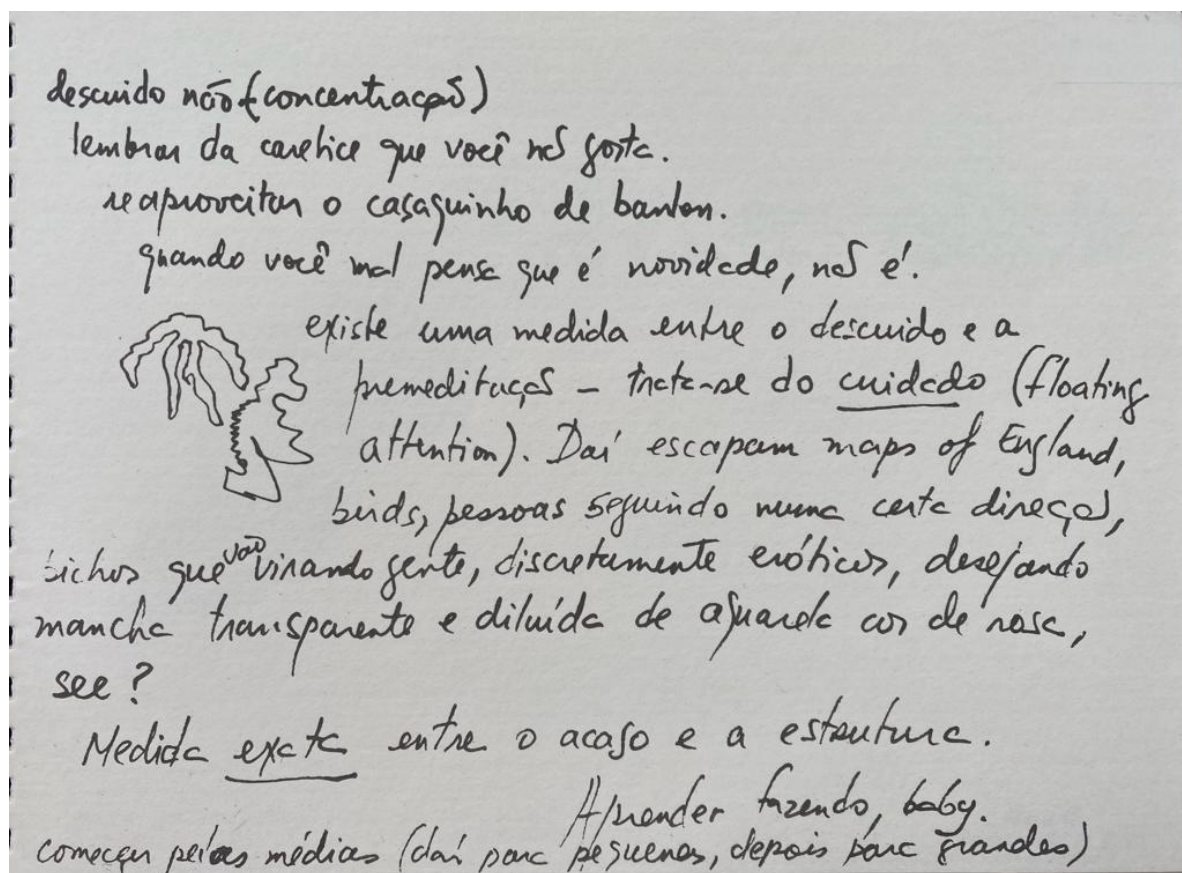 descuido não (concentração)
lembrar da caretice que você não gosta.
reaproveitar o casaquinho de banlon.
quando você mal pensa que é novidade, não é.
existe uma medida entre o descuido e a
premeditação – trata-se do cuidado (floating
attention). Daí escapam maps of England,
birds, pessoas seguindo numa certa direção,
bichos que vão virando gente, discretamente eróticos, desejando
mancha transparente e diluída de aquarela cor de rosa,
see?
Medida exata entre o acaso e a estrutura.
Aprender fazendo, baby.
começar pelas médias (daí para pequenas, depois para grandes)